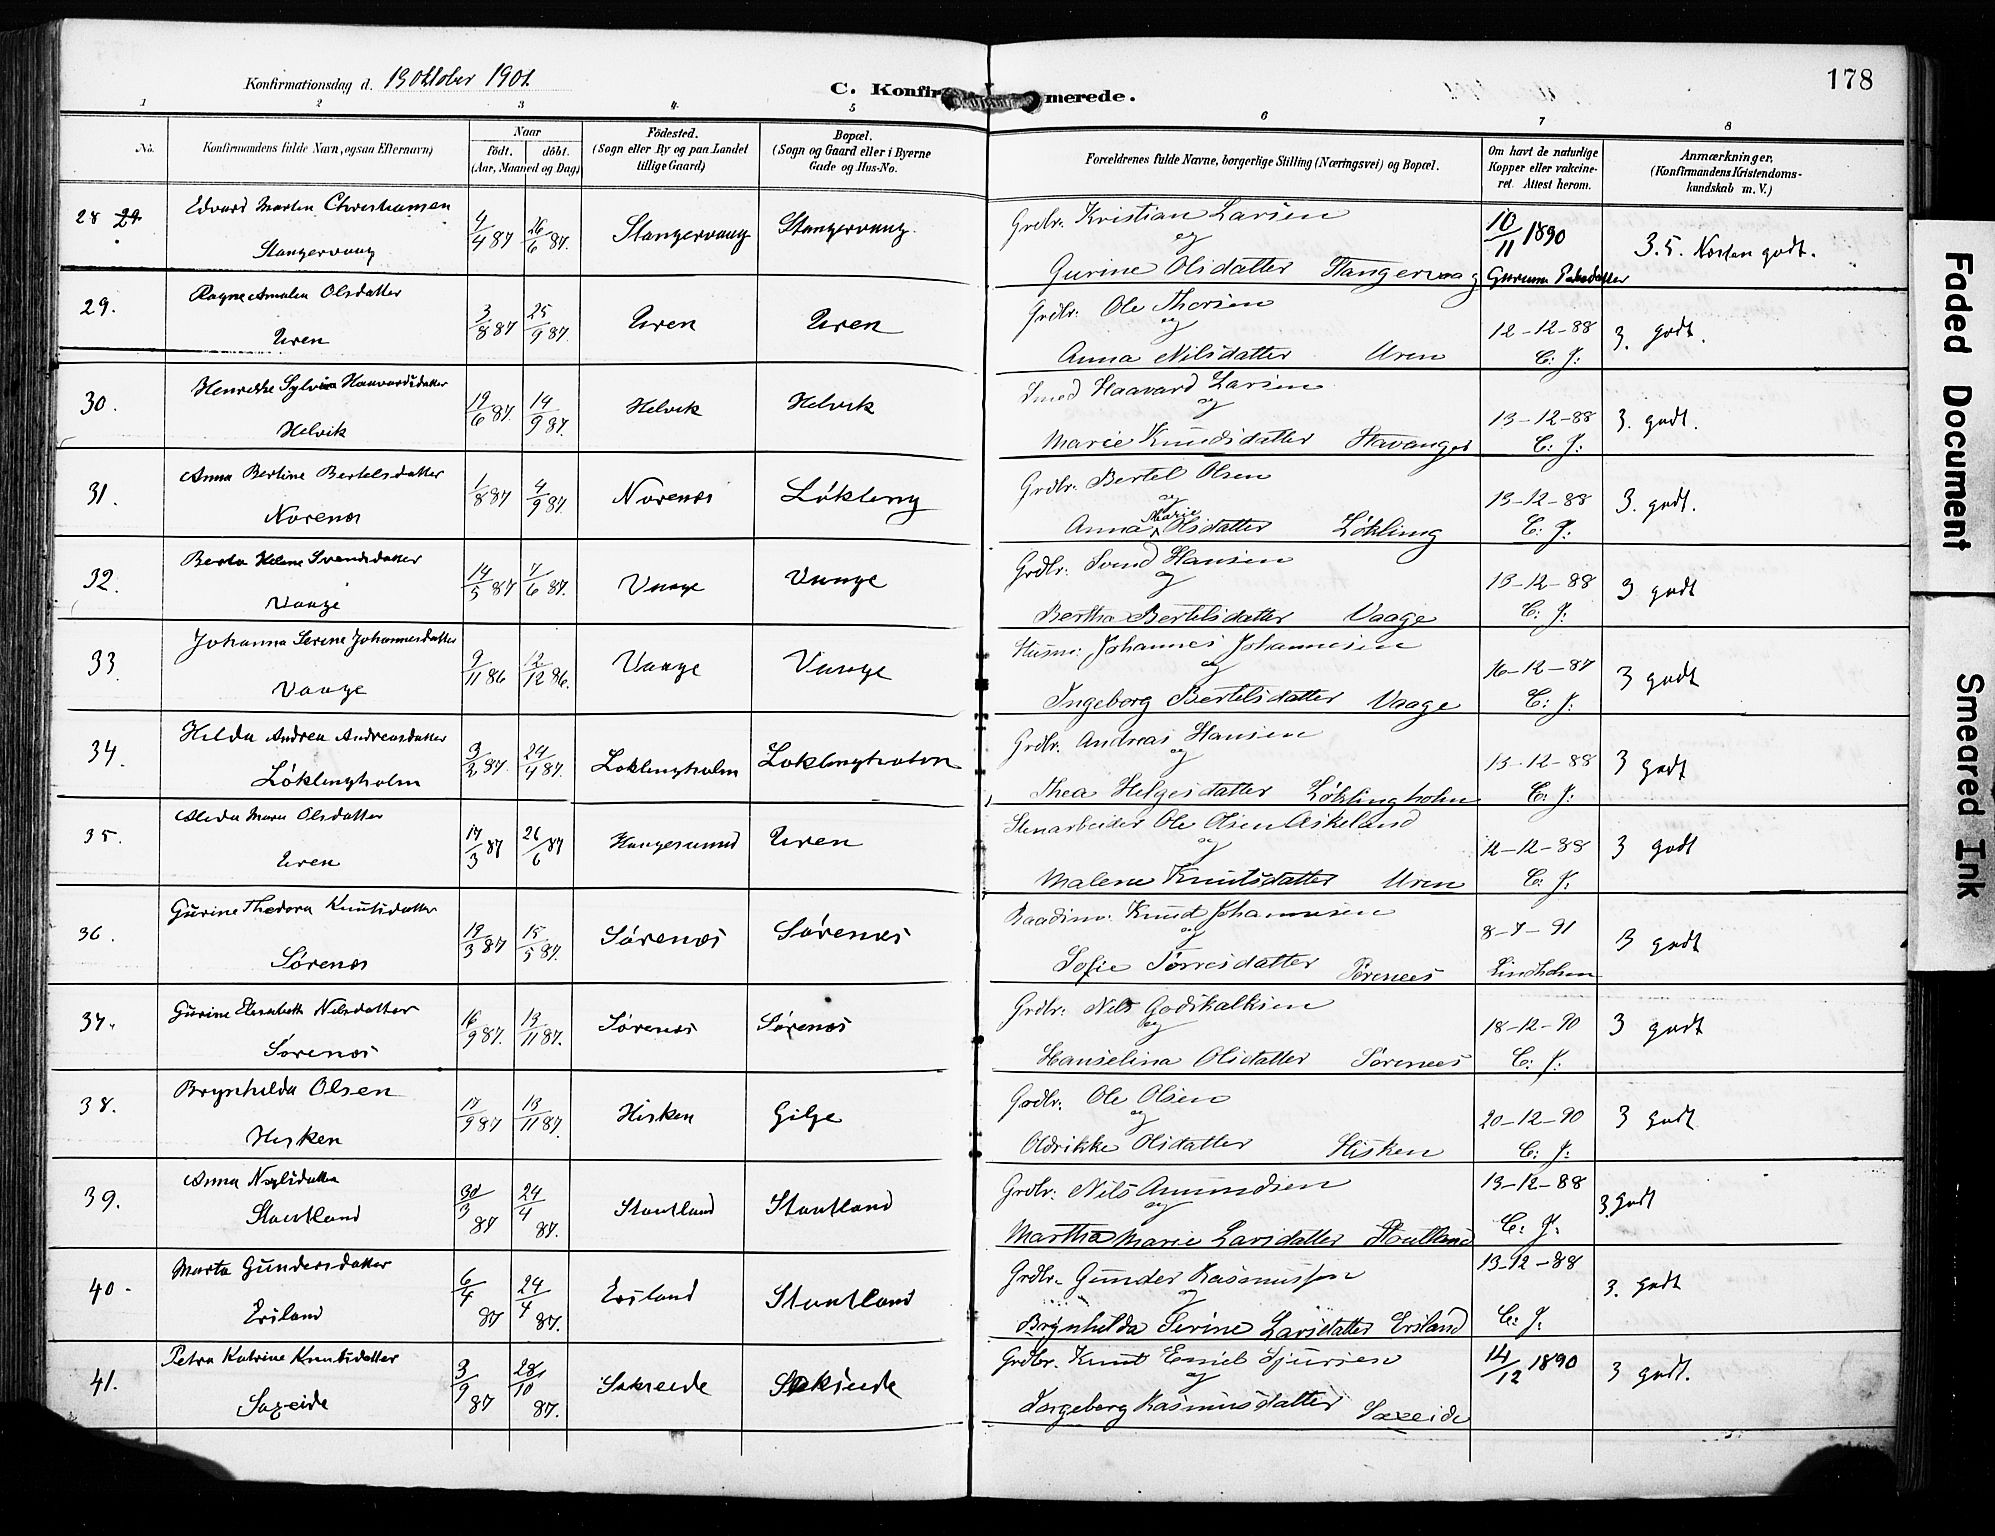 Konfirmationsdag d. 13 Oktober 1901.
C. Konfir merede.
178
1 2 3 4 5 6 7 8
No.
Konfirmandens fulde Navn, ogsaa Efternavn)
Naar
födt. döbt.
(Aar, Maaned og Dag)
Födested.
(Sogn eller By og paa Landet
tillige Gaard)
Bopæl.
(Sogn og Gaard eller i Byerne
Gade og Hus-No.
Forældrenes fulde Navne, borgerlige Stilling (Næringsvei) og Bopæl.
Om havt de naturlige
Kopper eller vakcine-
ret. Attest herom.
Anmærkninger,
(Konfirmandens Kristendoms-
kundskab m. V.)
28 29 Edvard Martin Christiansen 4/4 87 26/6 87. Stangervaag Stangervaag. Grdbr. Kristian Larsen 10/11 1890 3.5. Næsten godt.
Stangervaag og
Gurine Olsdatter Stangervaag
29. Ragne Amalia Olsdatter 3/8 87 25/9 87. Uren Uren Grdbr. Ole Thorsen 12-12-88 3. godt.
Uren og
Anna Nilsdatter Uren C. J.
30. Henrikke Sylvia Haavardsdatter 19/6 87. 14/9 87. Helvik Helvik Smed Haavard Larsen 13-12-88 3. godt.
Helvik og
Marie Knudsdatter Stavanger C: J:
31. Anna Bertine Bertelsdatter 1/8 87 4/9 87. Norenæs Løkling Grdbr. Bertel Olsen 13-12-88 3. godt.
Norenæs og
Anna Marie Olsdatter Løkling C: J:
32. Berta Helene Svendsdatter 14/5 87 7/6 87. Vaage Vaage Grdbr. Svend Hansen 13-12-88 3 godt
Vaage og
Bertha Bertelsdatter Vaage C: J:
33. Johanna Serine Johannesdatter 9/11 86 12/12 86. Vaage Vaage Husm: Johannes Johannesen 16-12-87 3 godt
Vaage og
Ingeborg Bertelsdatter Vaage C: J:
34. Helda Andrea Andreasdatter 3/2 87. 24/4 87. Løklingholm Løklingholm Grdbr. Andreas Hansen 13-12-88 3 godt
Løklingholm og
Thea Helgesdatter Løklingholm C: J:
35. Alida Maria Olsdatter 17/3 87 26/6 87 Haugesund Uren Stenarbeider Ole Olsen Askeland 12-12-88 3 godt
Uren og
Malene Knutsdatter Uren C: J:
36. Gurine Thedora Knutsdatter 19/3 87 15/5 87. Sørenæs Sørenæs Knud Johannesen 8-7-91 3 godt
Sørenæs og
Sofie Torresdatter Sørenæs Lindholm
37. Gurine Elisabeth Nilsdatter 16/9 87. 13/11 87. Sørenæs Sørenæs Grdbr: Nils Godskalksen 18-12-90 3 godt
Sørenæs og
Hanselina Olsdatter Sørenæs C: J:
38. Brynhilda Olsen 17/9 87 13/11 87. Hisken Gilje Grdbr: Ole Olsen 20-12-90 3 godt
Hisken og
Oldrikke Olsdatter Hisken C: J:
39. Anna Nilsdatter 30/3 87 24/4 87. Stautland Stautland Grdbr: Nils Amundsen 13-12-88 3. godt
Stautland og
Martha Marie Larsdatter Stautland C: J:
40. Marta Gundersdatter 6/4 87 24/4 87. Ersland Stautland Grdbr. Gunder Rasmussen 13-12-88 3. godt
Ersland og
Brynhilda Serine Larsdatter Ersland C: J:
41. Petra Katrine Knutsdatter 3/9 87 28/10 87. Sakseide Sakseide Grdbr. Knut Emil Sjursen 14/12 1890 3 godt.
Saxeide og
Ingeborg Rasmusdatter Saxeide
Faded Document
Smeared Ink